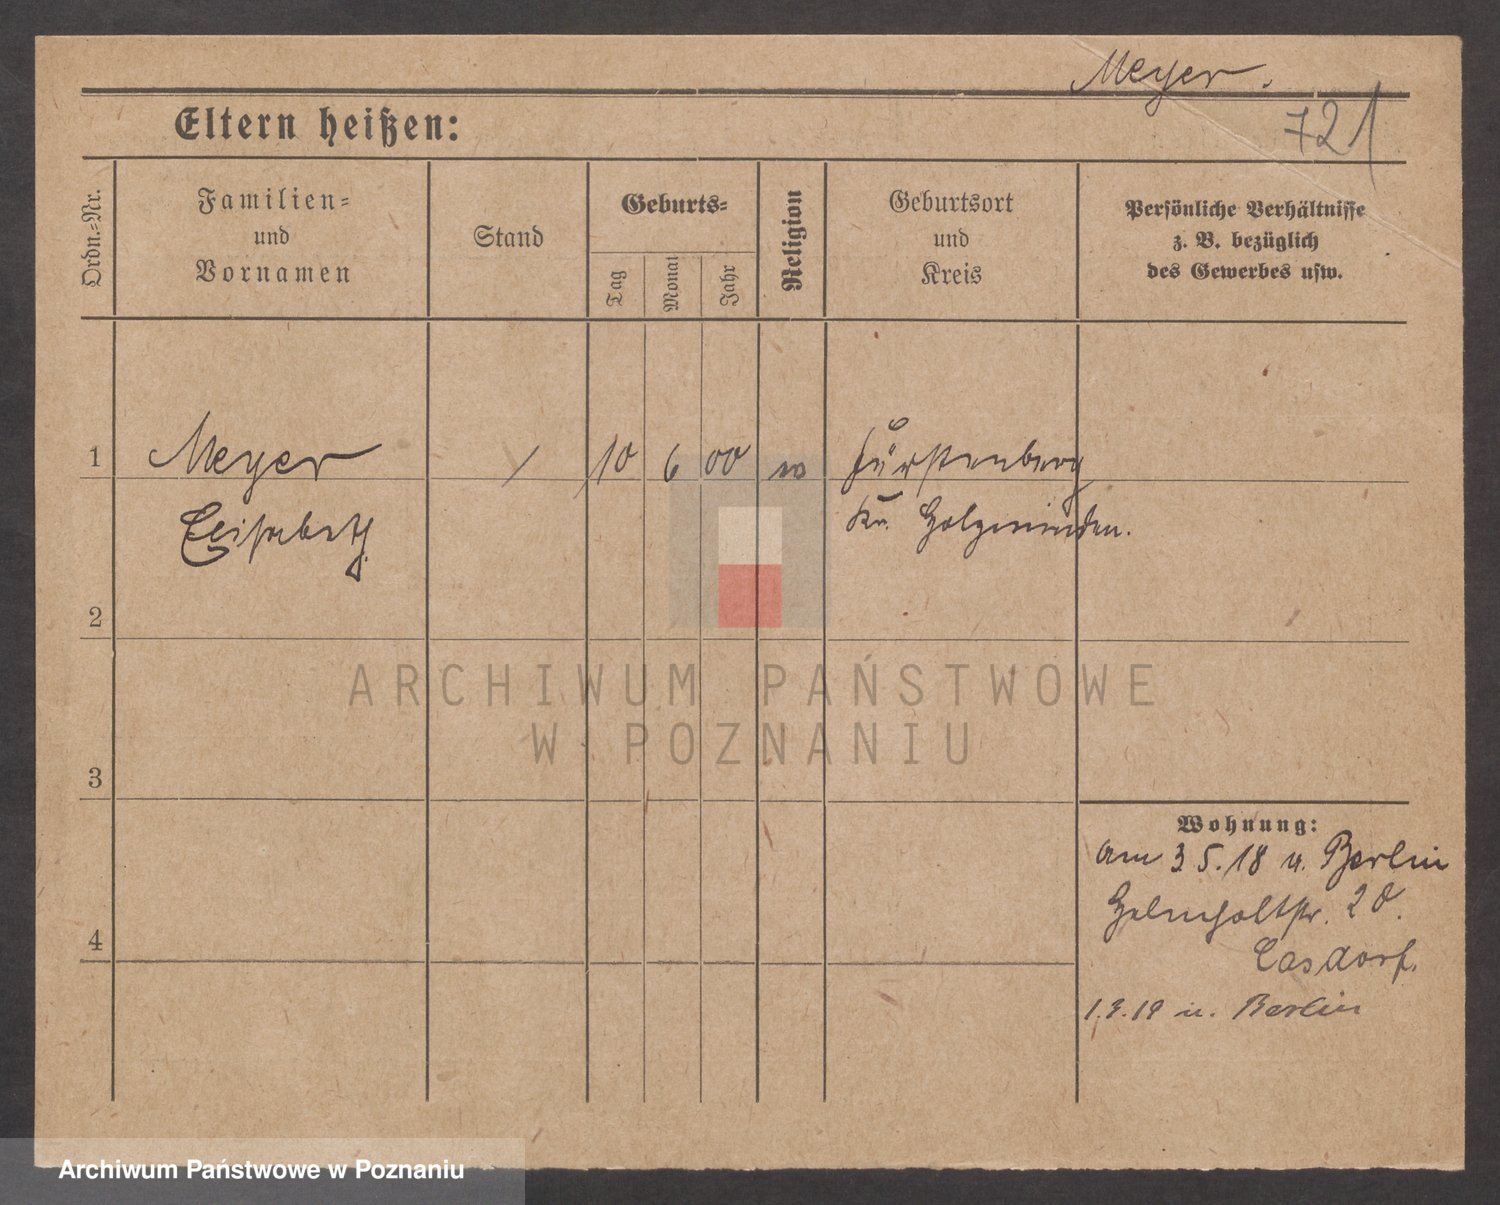 Meyer.
721
Eltern heißen:
Ordn.-Nr.
Familien-
und
Vornamen
Stand
Geburts-
Tag
Monat
Jahr
Religion
Geburtsort
und
Kreis
Persönliche Verhältnisse
z. B. bezüglich
des Gewerbes usw.
1
Meyer
/
10
6
00
Fürstenberg
Elisabeth
Kr. Holzminden.
2
ARCHIWUM PAŃSTWOWE
W POZNANIU
3
Wohnung:
am 3 5. 18 n. Berlin
Helmholtstr. 20.
4
1.3.19 n. Berlin
Archiwum Państwowe w Poznaniu